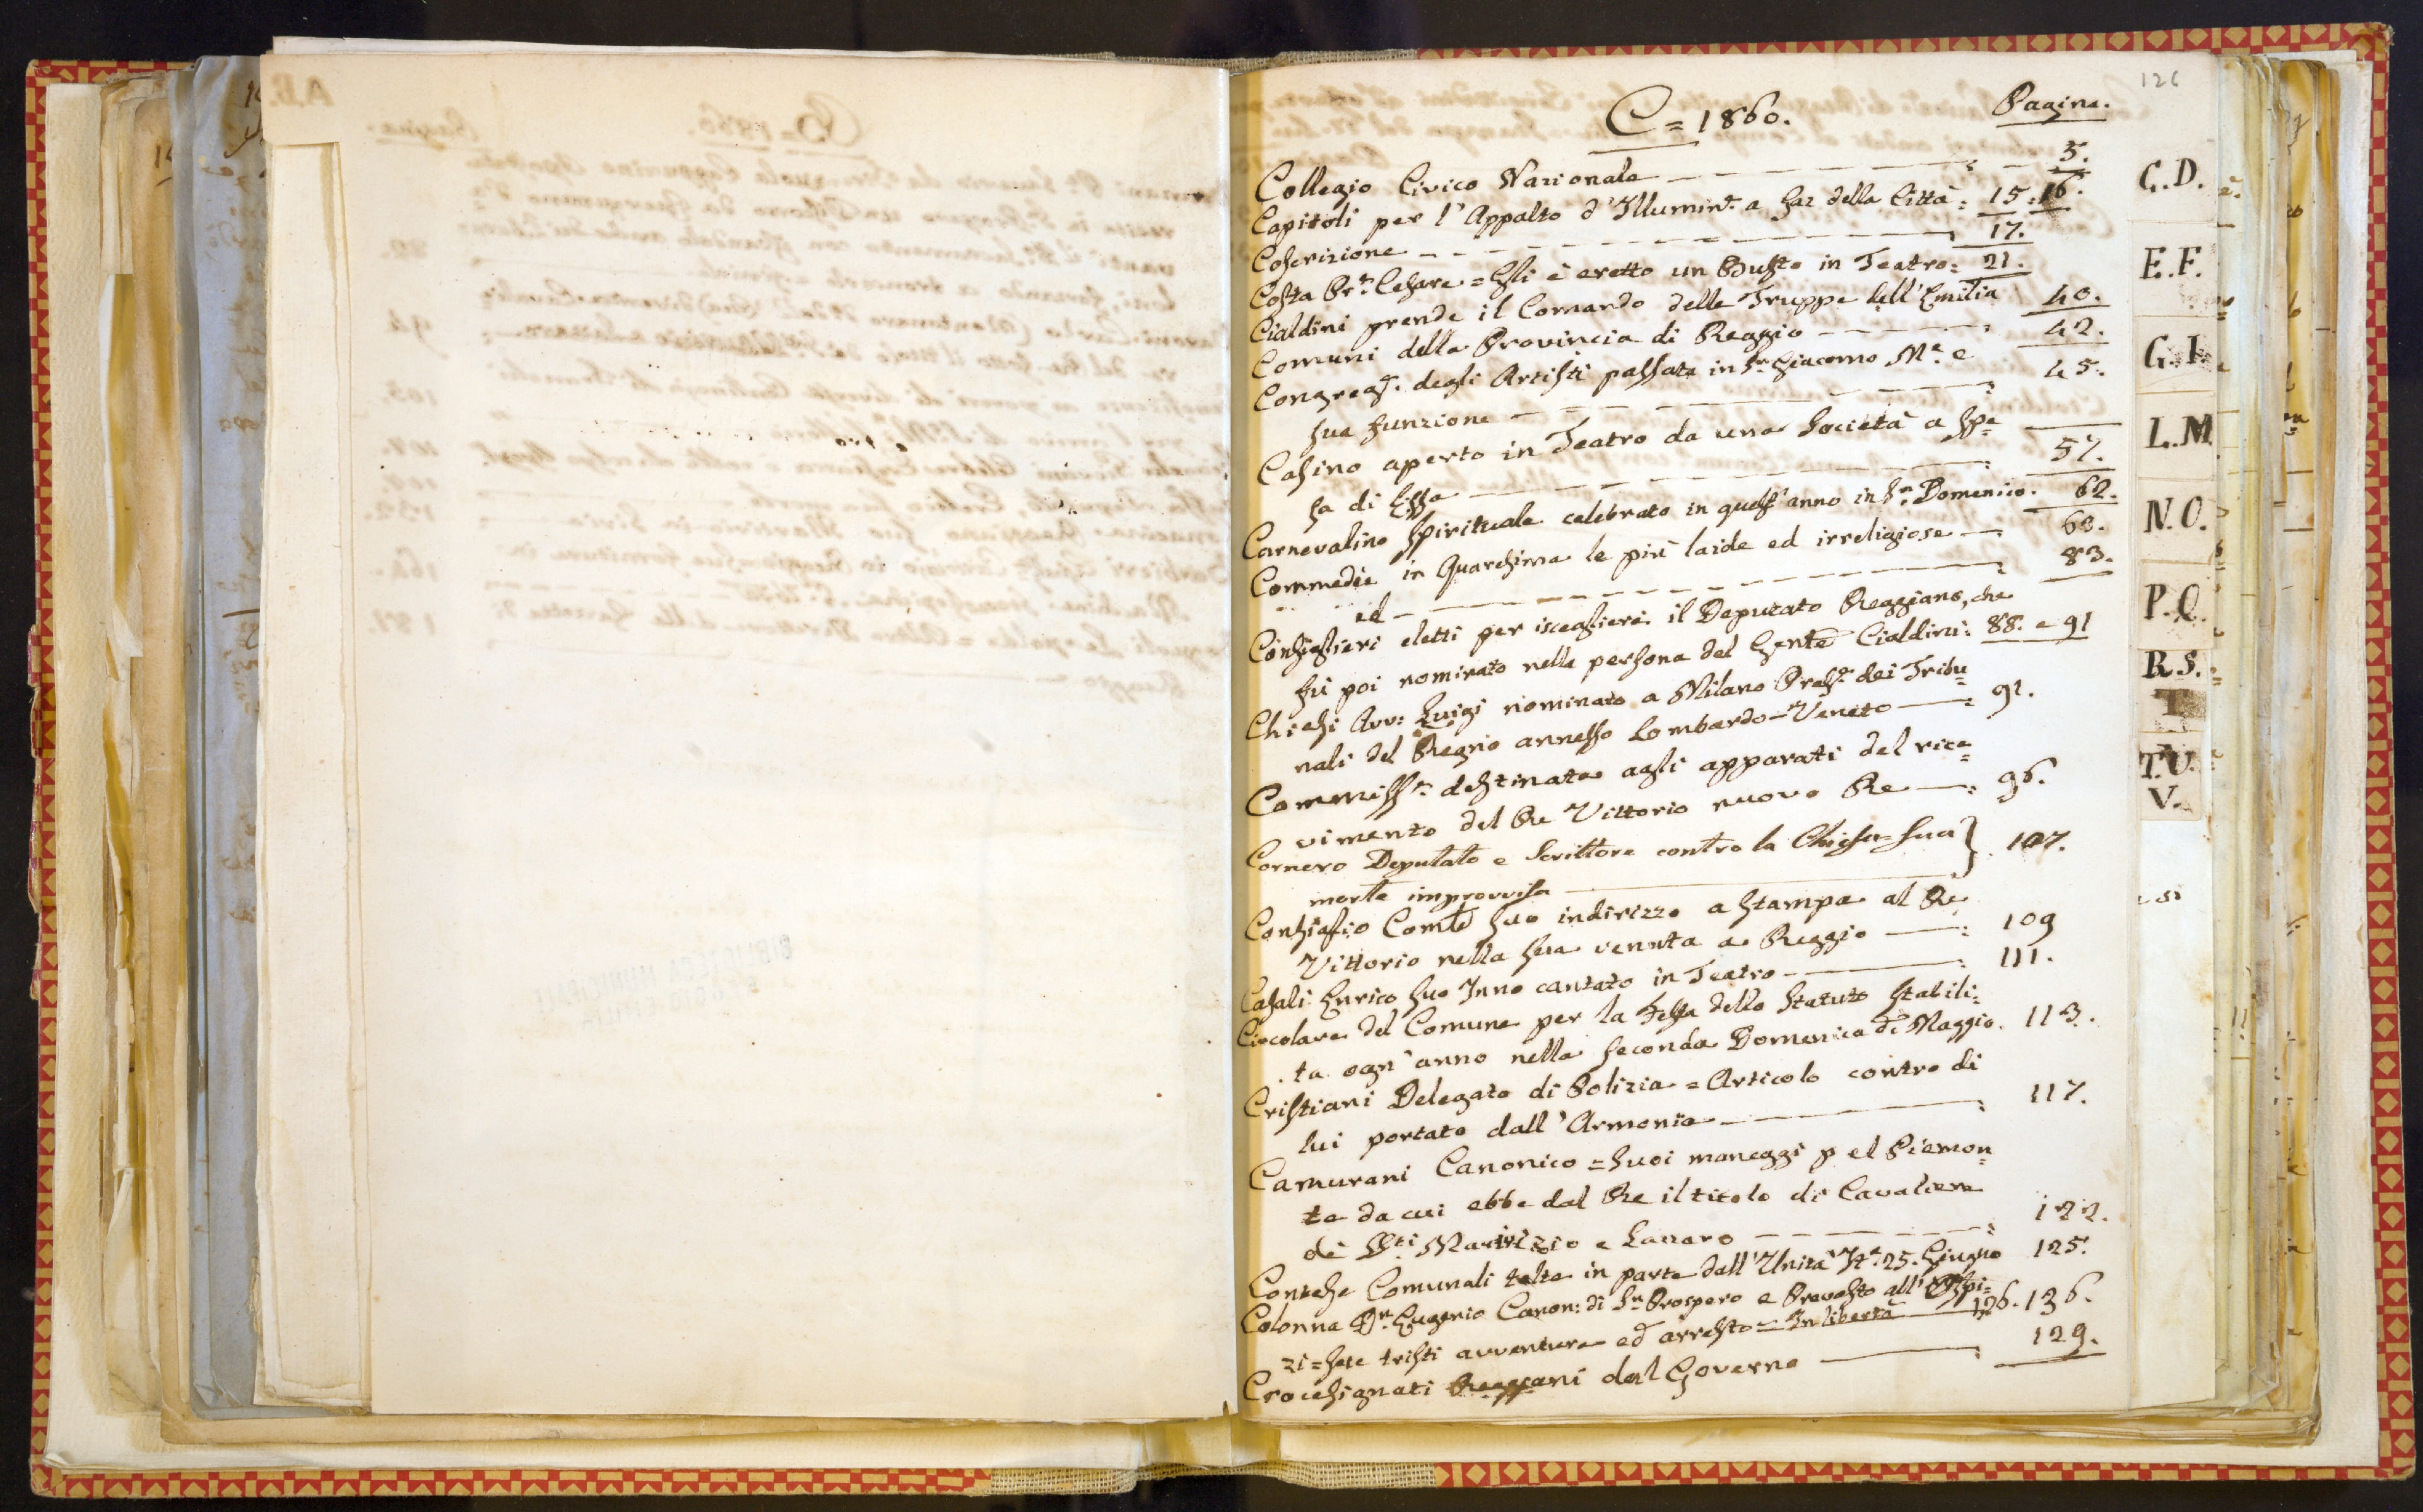 126
C = 1860.
Pagine.
Collegio Civico Nazionale 5.
Capitoli per l'Appalto d'Illumin.e a Gaz della Città: 15.16.
Coscrizione 17.
Costa Pr.e Cesare = Gli è eretto un Busto in Teatro: 21.
Cialdini prende il Comando delle Truppe dell'Emilia 40.
Comuni della Provincia di Reggio 42.
Congreg. degli Artisti passata in Sn Giacomo M.e e 45.
sua funzione
Casino aperto in Teatro da una Società a spe=
sa di Essa 57.
Carnevalino Spirituale celebrato in quest'anno in Sn Domenico. 62.
Commedie in Quaresima le più laide ed irreligiose 63.
ed 83.
Consiglieri eletti per iscegliere il Deputato Reggiano, che
fù poi nominato nella persona del Gente Cialdini: 88. e 91
Chiesi Avv: Luigi nominato a Milano Pres.e dei Tribu=
nali del Regno annesso Lombardo-Veneto: 92.
Commiss.e destinata agli apparati del rice=
vimento del Re Vittorio nuovo Re: 96.
Cornero Deputato e Scrittore contro la Chiesa = sua } 107.
morte improvvisa
Consiglio Comle suo indirizzo a stampa al Re
Vittorio nella sua venuta a Reggio: 109
Casali Enrico suo Inno cantato in Teatro: 111.
Circolare del Comune per la Festa dello Statuto stabili=
ta ogn'anno nella seconda Domenica di Maggio. 113.
Cristiani Delegato di Polizia = Articolo contro di
lui portato dall'Armonia: 117.
Camurani Canonico = suoi maneggi pel Piemon=
te da cui ebbe dal Re il titolo di Cavaliere
dè S.ti Maurizio e Lazaro: 122.
Contese Comunali tolte in parte dall'Unità It.a 25. Giugno 125.
Colonna Dn Eugenio Canon: di Sn Prospero e Prevosto all'Ospi=
zi = sue tristi avventure ed arresto = In libertà 126. 136.
Crocesignati Reggiani dal Governo: 129.
C.D.
E.F.
G.I.
L.M
N.O.
P.Q.
R.S.
T.
T.U.
V.